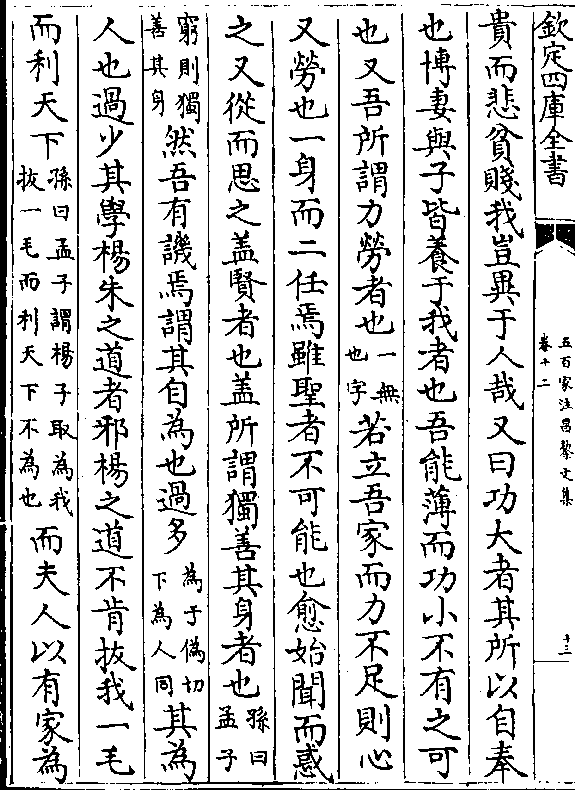 欽定四庫全書
五百家注昌黎文集
卷十二
十三
貴而悲貧賤我豈異于人哉又曰功大者其所以自奉
也博妻與子皆養于我者也吾能薄而功小不有之可
也又吾所謂力勞者也一無也字若立吾家而力不足則心
又勞也一身而二任焉雖聖者不可能也愈始聞而惑
之又從而思之盖賢者也盖所謂獨善其身者也孫曰孟子
窮則獨善其身然吾有譏焉謂其自為也過多為于偽切下為人同其為
人也過少其學楊朱之道者邪楊之道不肯拔我一毛
而利天下孫曰孟子謂楊子取為我拔一毛而利天下不為也而夫人以有家為